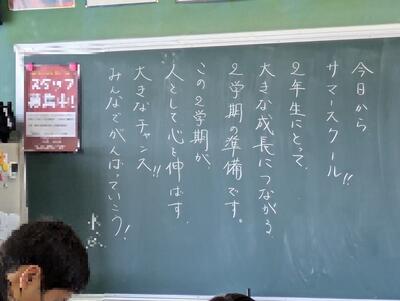 今日から
サマースクール!!
2年生にとって、
大きな成長につながる
2学期の準備です。
この2学期が、
人として心を伸ばす
大きなチャンス!!
みんなでがんばっていこう!
スタッフ
募集中!